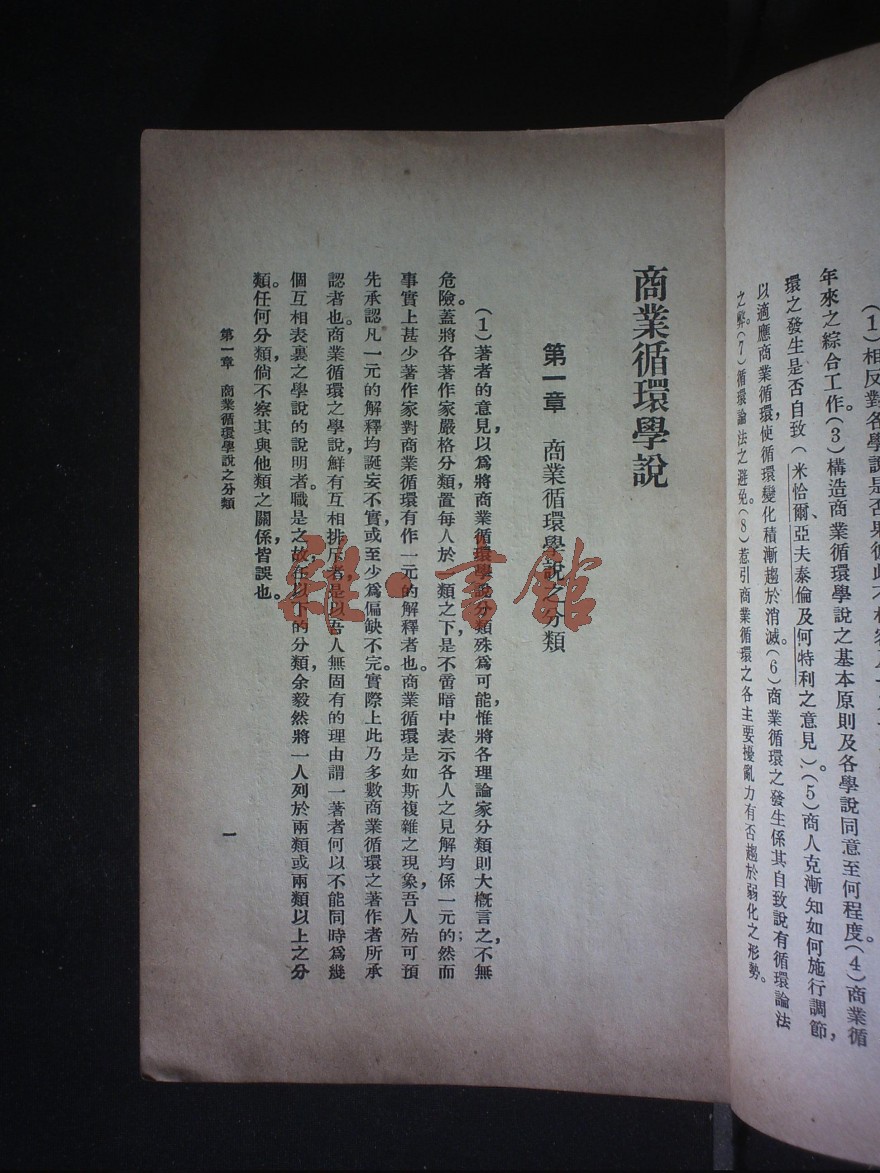 (1)相反對各學說是否果彼此不相容
年來之綜合工作。(3)構造商業循環學說之基本原則及各學說同意至何程度。(4)商業循
環之發生是否自致(米恰爾、亞夫泰倫及何特利之意見)。(5)商人克漸知如何施行調節,
以適應商業循環,使循環變化積漸趨於消滅。(6)商業循環之發生係其自致說有循環論法
之弊。(7)循環論法之避免。(8)惹引商業循環之各主要擾亂力有否趨於弱化之形勢。
商業循環學說
第一章 商業循環學說之分類
(1)著者的意見,以爲將商業循環學說分類殊爲可能,惟將各理論家分類則大概言之,不無
危險。蓋將各著作家嚴格分類,置每人於一類之下,是不啻暗中表示各人之見解均係一元的;然而
事實上甚少著作家對商業循環有作一元的解釋者也。商業循環是如斯複雜之現象,吾人殆可預
先承認凡一元的解釋均誕妄不實,或至少爲偏缺不完。實際上此乃多數商業循環之著作者所承
認者也。商業循環之學說,鮮有互相排斥者,是以吾人無固有的理由謂一著者何以不能同時爲幾
個互相表裏之學說的說明者。職是之故,在以下的分類,余毅然將一人列於兩類或兩類以上之分
類。任何分類,倘不察其與他類之關係,皆誤也。
第一章 商業循環學說之分類
一
雜·書館